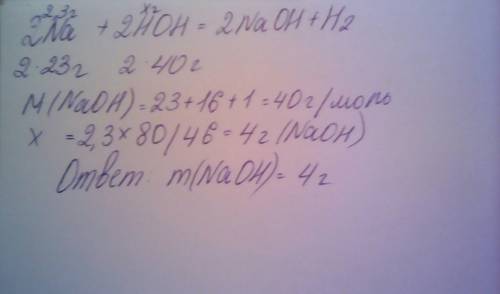 2,3г xг
2Na + 2HOH = 2NaOH + H2
2·23г 2·40г
M(NaOH)=23+16+1=40г/моль
x =2,3×80/46=4г(NaOH)
Ответ: m(NaOH)= 4г